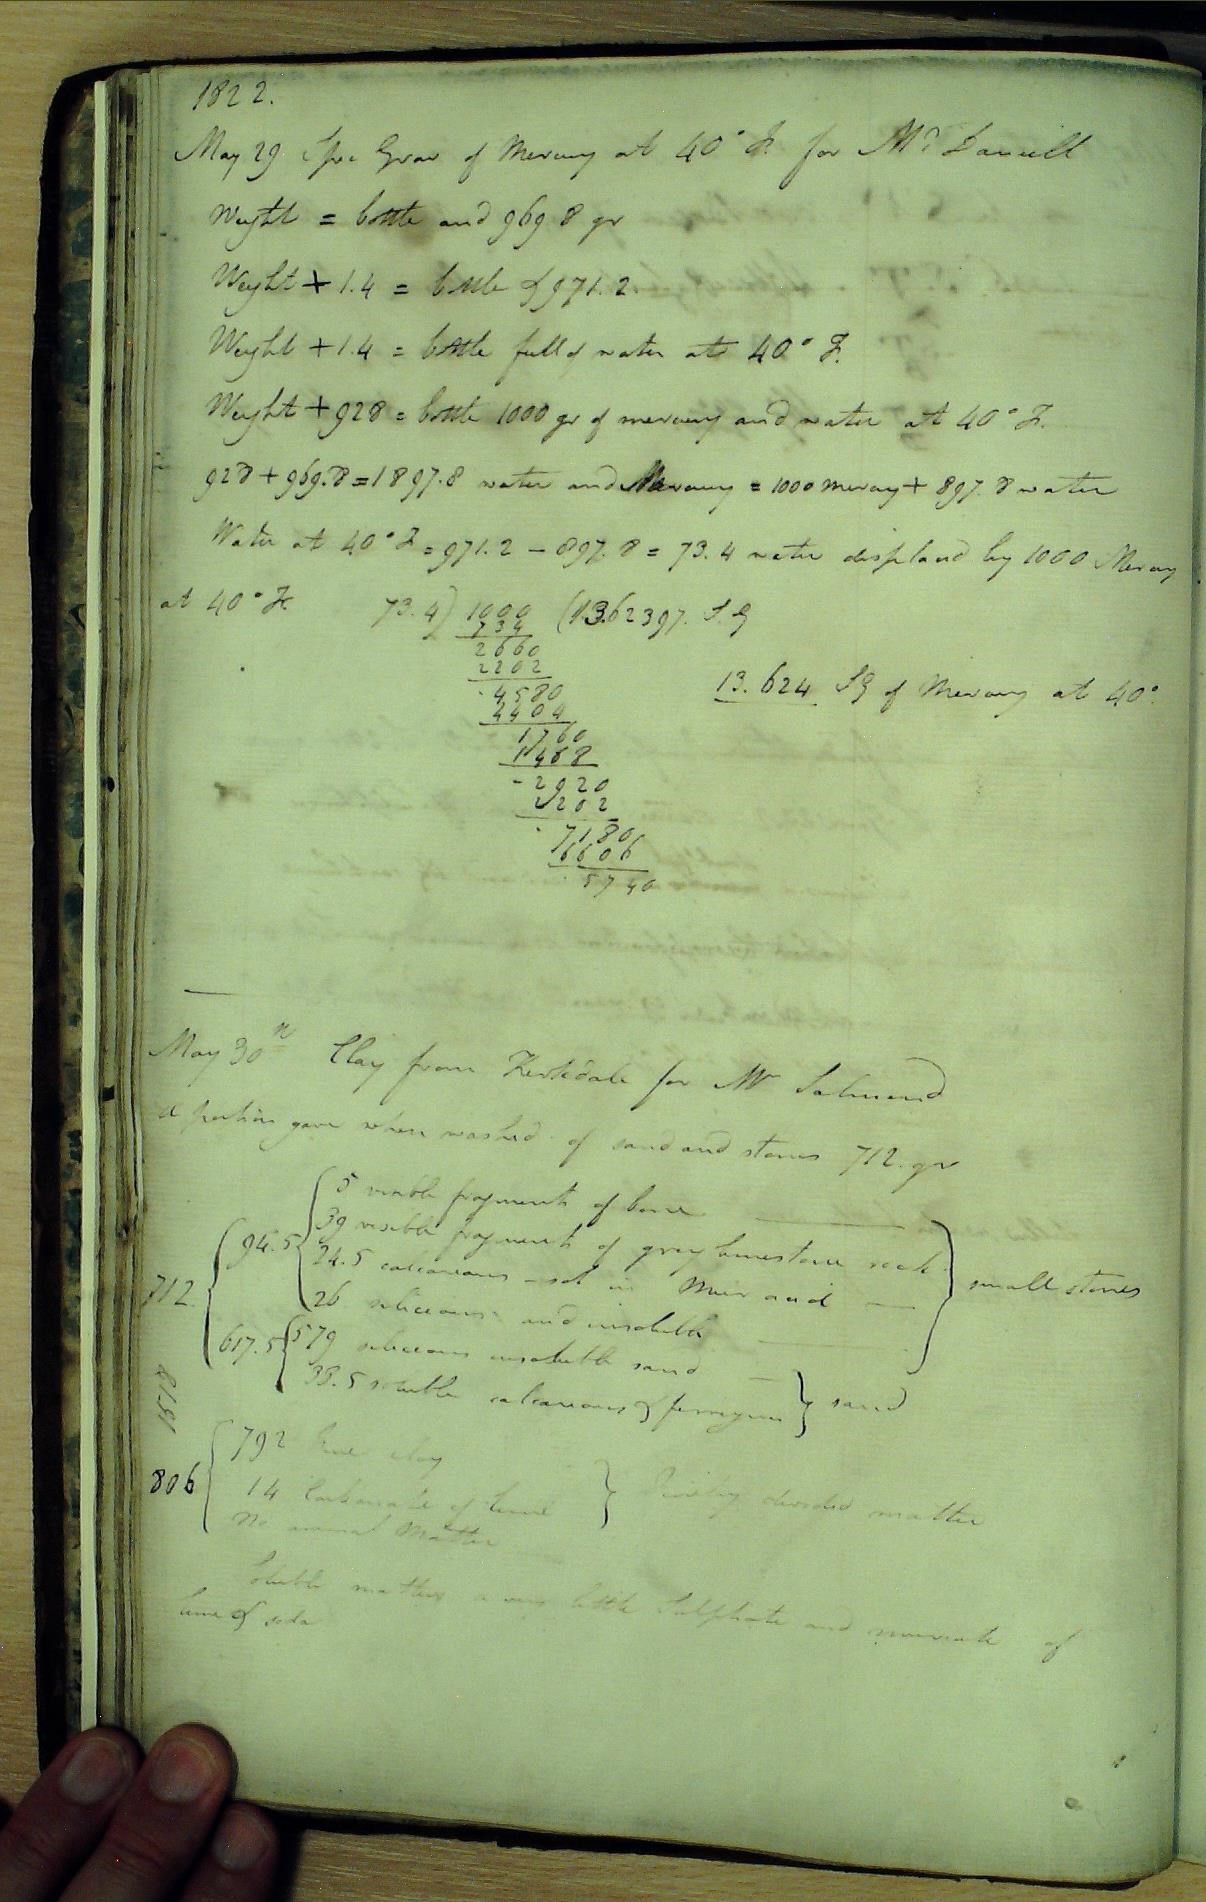 1822.
May 29 Spec Grav of Mercury at 40° F. for Mr Daniell
Weight = bottle and 969.8 gr
Weight + 1.4 = bottle & 971.2.
Weight + 1.4 = bottle full of water at 40° F.
Weight + 928 = bottle 1000 gr of mercury and water at 40° F.
928 + 969.8 = 1897.8 water and Mercury = 1000 mercury + 897.8 water
Water at 40° F = 971.2 - 897.8 = 73.4 water displaced by 1000 Mercury
at 40° F. 73.4) 1000 (13.62397. S.G
734
2660
2202
4580
4404
1760
1468
2920
2202
7180
6606
5740
13.624 SG of Mercury at 40°
May 30th Clay from Kirkdale for Mr Salmond
A portion gave when washed of sand and stones 712. gr
5 visible fragments of bone
39 visible fragments of grey limestone rock
94.5 24.5 calcareous - sol in Mur acid
26 siliceous and insoluble
small stones
712.
617.5 579 siliceous insoluble sand
38.5 soluble calcareous & ferruginous
sand
1518
792 fine clay
806 14 Carbonate of lime
No animal Matter
Finely divided matter
Soluble matters a very little Sulphate and muriate of
lime & soda